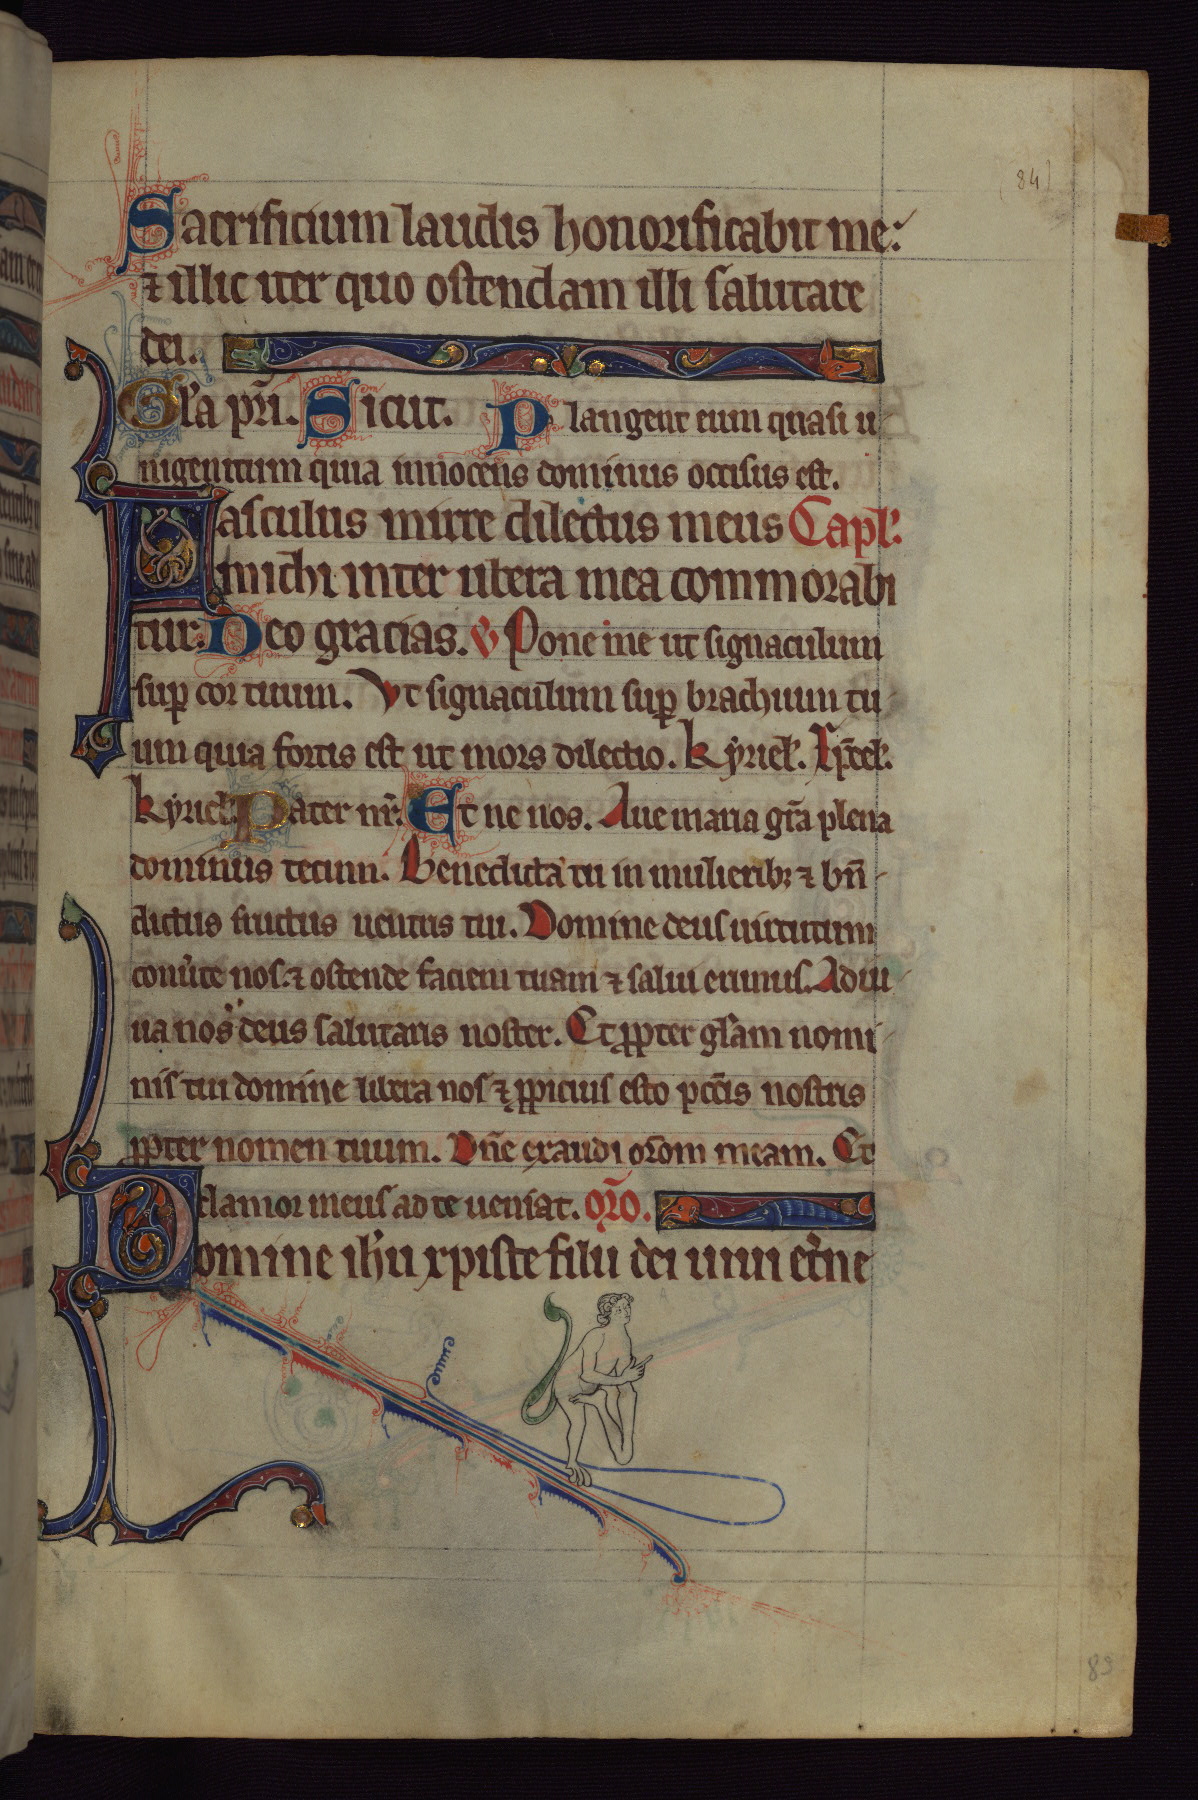 (84)
Sacrificium laudis honorificabit me:
⁊ illic iter quo ostendam illi salutare
dei.
Gl'a pr̄i. Sicut. Plangent eum quasi u
nigenitum quia innocens dominus occisus est.
Fasculus mirre dilectus meus Capl'.
michi inter ubera mea commorabi
tur. Deo gracias. ℣ Pone me ut signaculum
sup̱ cor tuum. Vt signaculum sup̱ brachium tu
um quia fortis est ut mors dilectio. Kyriel'. Xp̄el'.
Kyriel'. Pater nr̄. Et ne nos. Aue maria gr̄a plena
dominus tecum. Benedicta tu in mulierib; ⁊ bn̄
dictus fructus uentris tui. Domine deus uirtutum
conu'te nos. ⁊ ostende faciem tuam ⁊ salui erimus. Adiu
ua nos deus salutaris noster. Et ꝓpter gl'am nomi
nis tui domine libera nos ⁊ ꝓpicius esto pcc̄is nostris
ꝓpter nomen tuum. Dn̄e exaudi or̄om meam. Et
clamor meus ad te ueniat. or̄o.
Domine ih'u xpiste filii dei uiui et'ne
83